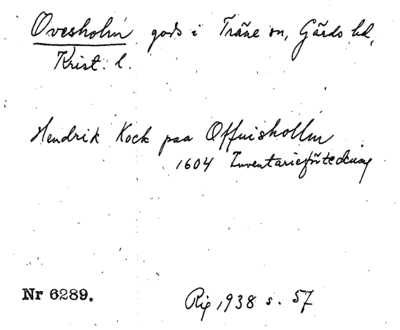 Ovesholm gods i Träne sn, Gärds hd,
Krist. l.
Hendrik Kock paa Offuishollm
1604 Inventarieförteckning
Nr 6289.
Rig 1938 s. 57